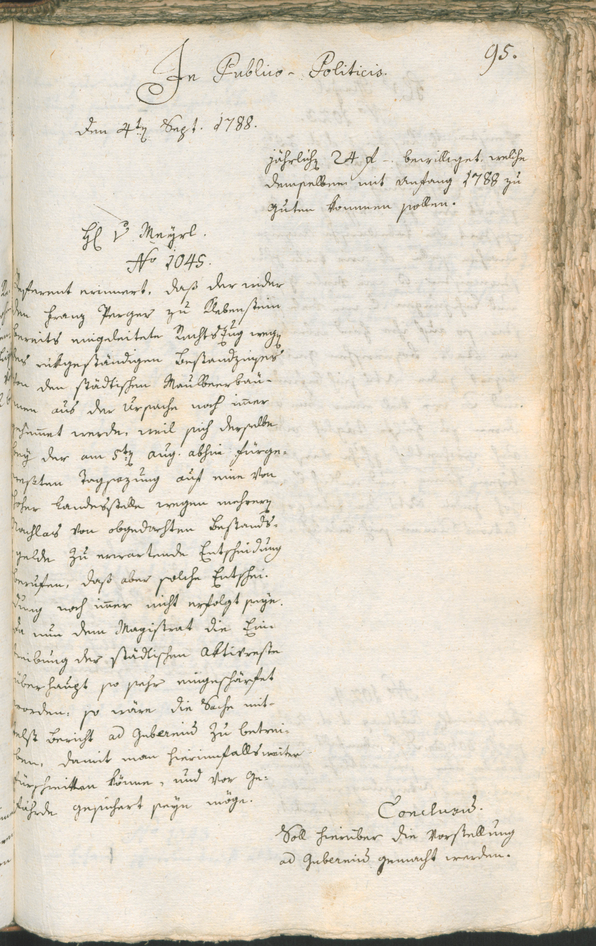 95.
In Publico-Politicis.
den 4tn Sept. 1788.
jährlich 24 f - bewilliget, welche
demselben mit Anfang 1788 zu
guten kommen sollen.
H v Meyrl.
No 1045.
Referent erinnert, daß der wider
den Franz Perger zu Klebenstein
bereits eingeleitete Rechtszug wegn
des rükständigen Bestandzinses
von den städtischen Maulbeerbäu-
men aus der Ursache noch imer
gehemmet werde, weil sich derselbe
bey der am 5tn Aug. abhin fürge-
westen Tagsazung auf eine von
hoher Landesstelle wegen mehrern
Nachlas von obgedachten Bestands-
gelde zu erwartende Entscheidung
berufen, daß aber solche Entschei-
dung noch imer nicht erfolgt seye.
Da nun dem Magistrat die Ein
treibung der städtischen Aktivreste
überhaupt so sehr eingeschärfet
worden, so wäre die Sache mit-
telst Bericht ad Gubernium zu betrei-
ben, damit man hierinnfalls weiter
fürschreitten könne, und vor Ge-
fährde gesichert seyn möge.
Conclusum.
Soll hierüber die Vorstellung
ad Gubernium gemacht werden.